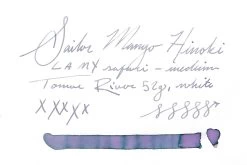 Sailor Manyo Hinoki
LAMY safari - medium
Tomoe River 52g, white
XXXXX